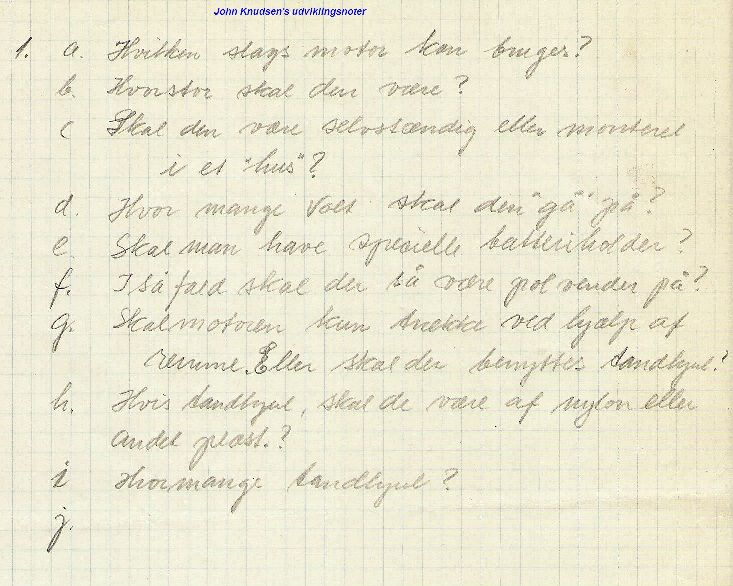 John Knudsen's udviklingsnoter
1. a. Hvilken slags motor kan bruges?
b. Hvorstor skal den være?
c Skal den være selvstændig eller monteret
i et "hus"?
d. Hvor mange Volt skal den "gå" på?
e. Skal man have specielle batteriholder?
f. I så fald skal der så være pol vender på?
g. Skal motoren kun trække ved hjælp af
remme. Eller skal der benyttes tandhjul?
h. Hvis tandhjul, skal de være af nylon eller
andet plast.?
i Hvormange tandhjul?
j.